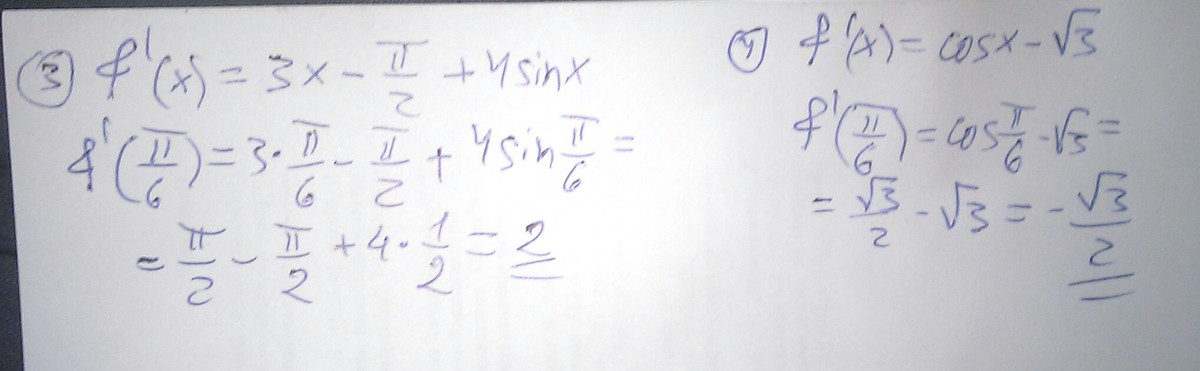 ③ f'(x) = 3x - π/2 + 4 sin x
f'(π/6) = 3·π/6 - π/2 + 4 sin π/6 =
= π/2 - π/2 + 4·1/2 = 2
④ f'(x) = cos x - √3
f'(π/6) = cos π/6 - √3 =
= √3/2 - √3 = -√3/2